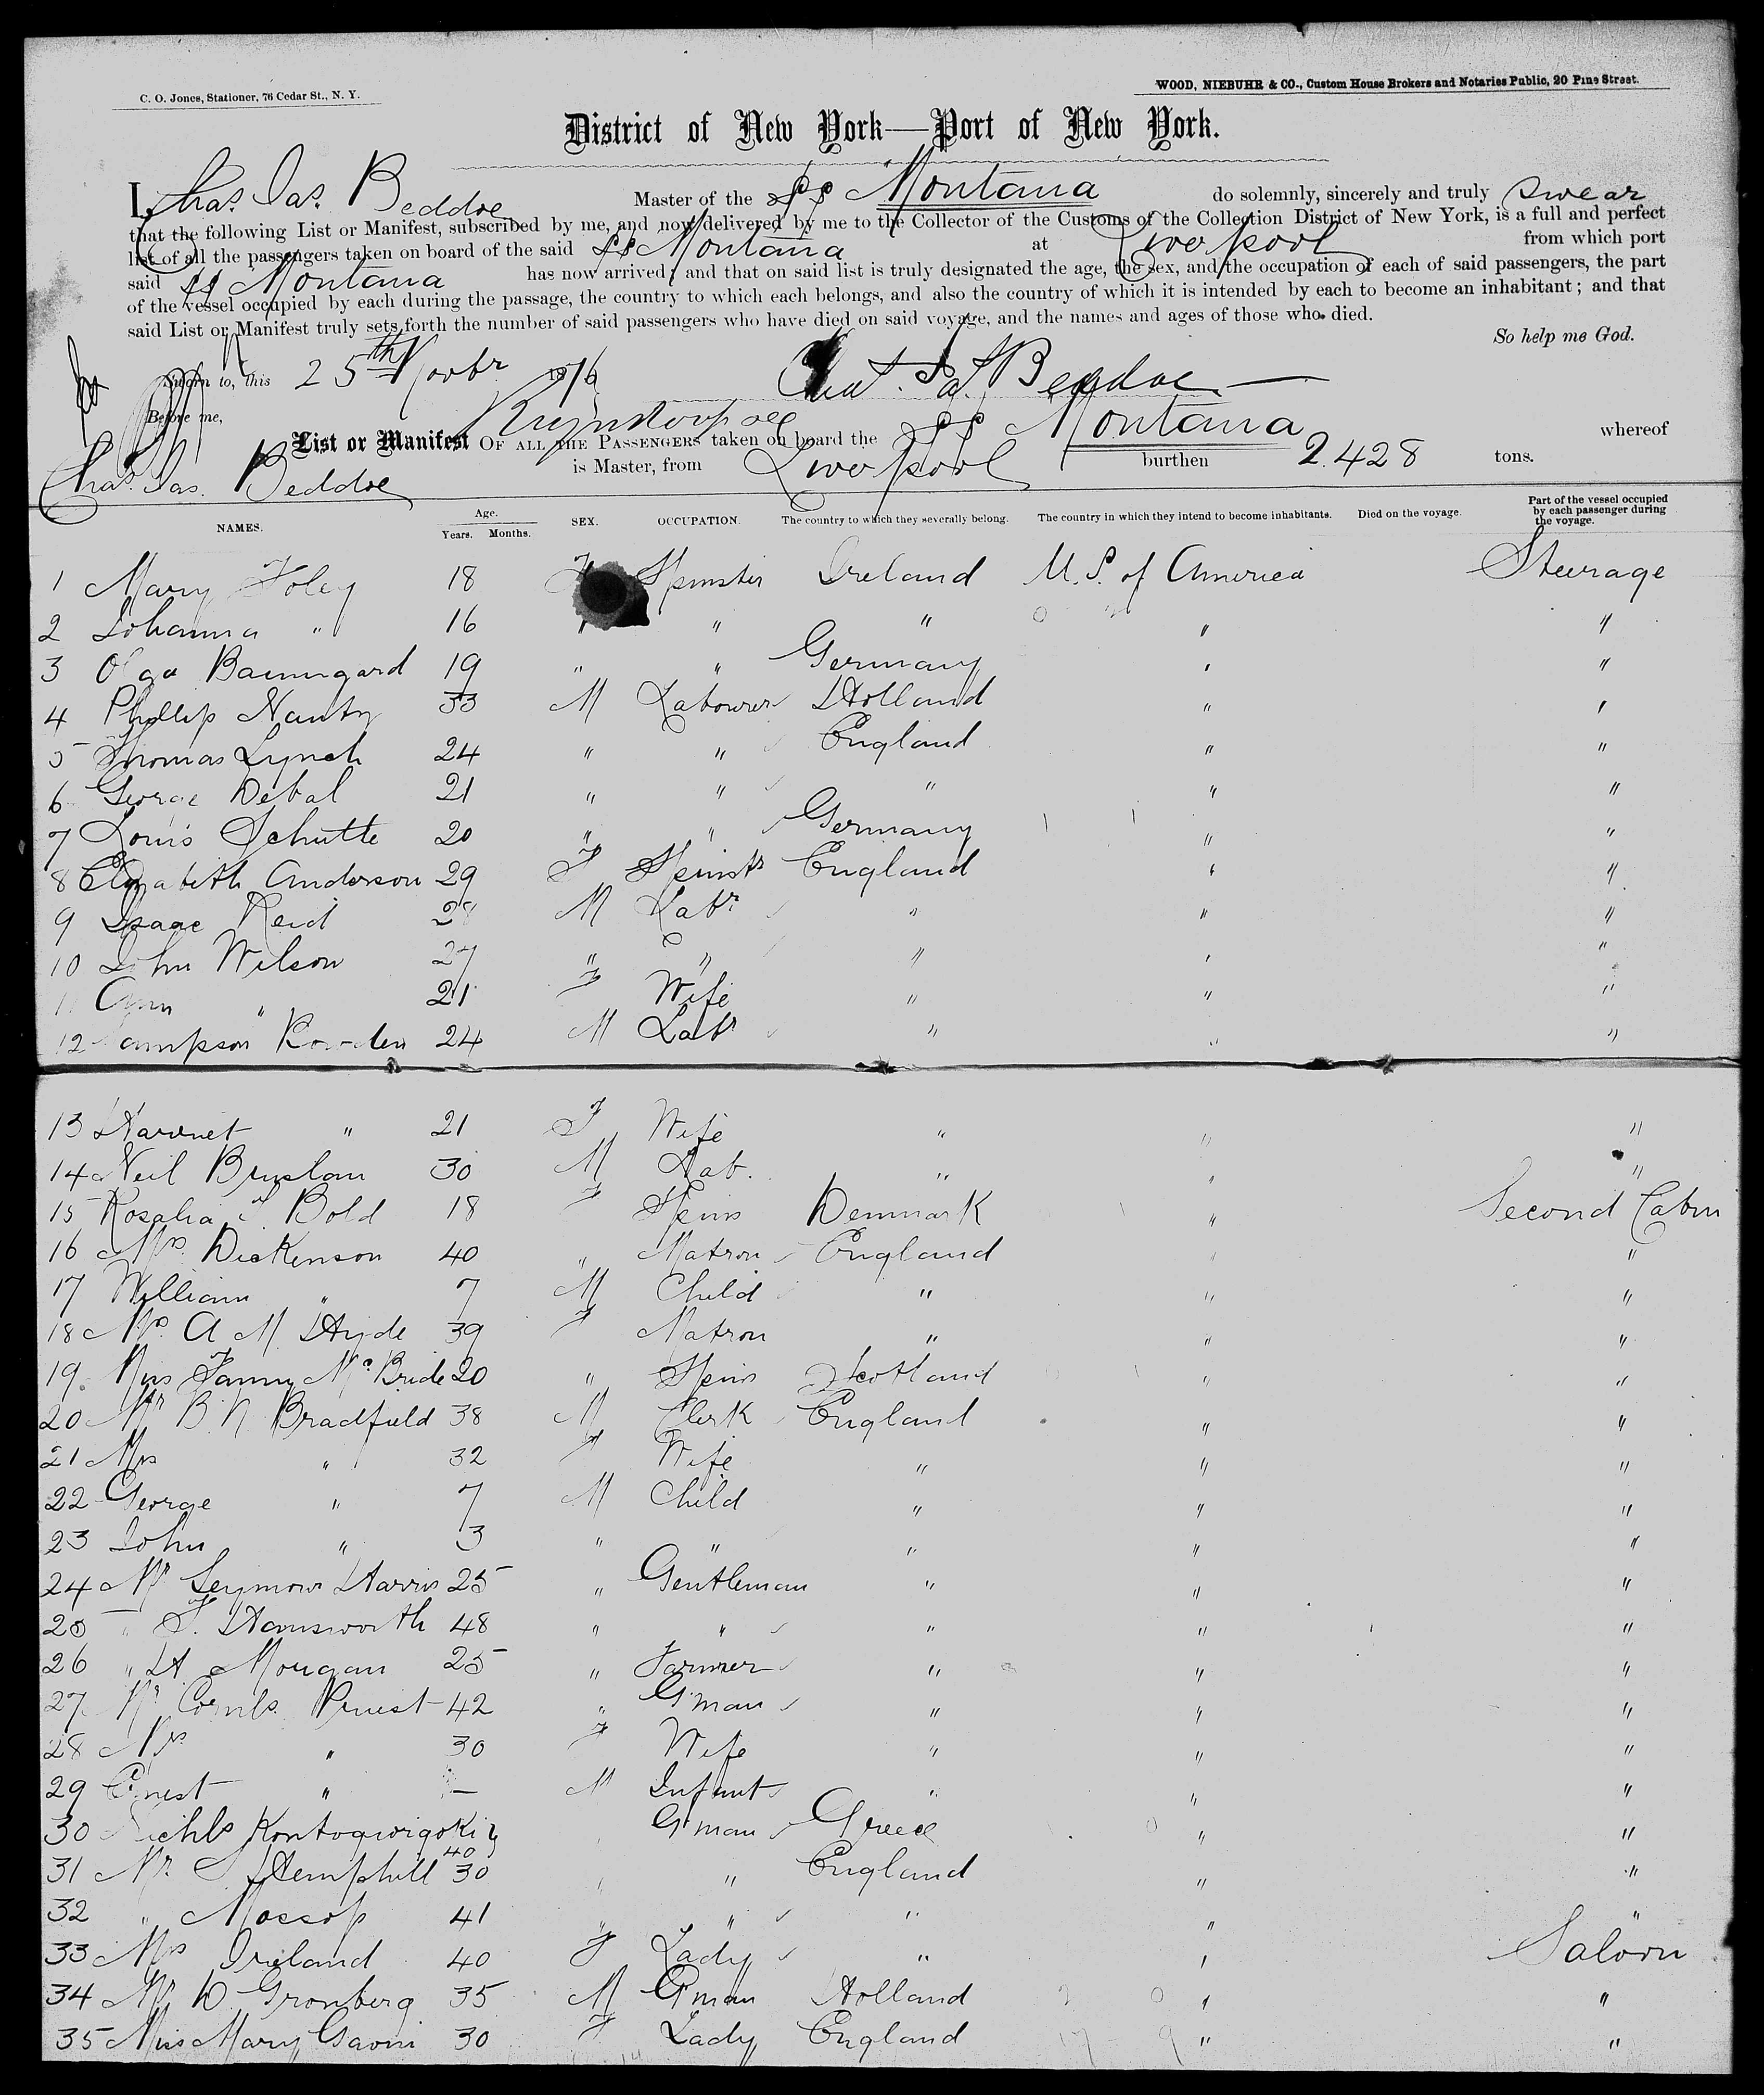 C. O. Jones, Stationer, 76 Cedar St., N. Y.
WOOD, NIEBUHR & CO., Custom House Brokers and Notaries Public, 20 Pine Street.
District of New York—Port of New York.
I, Chas. Jas. Beddoe Master of the SS Montana do solemnly, sincerely and truly swear
that the following List or Manifest, subscribed by me, and now delivered by me to the Collector of the Customs of the Collection District of New York, is a full and perfect
list of all the passengers taken on board of the said SS Montana at Liverpool from which port
said SS Montana has now arrived; and that on said list is truly designated the age, the sex, and the occupation of each of said passengers, the part
of the vessel occupied by each during the passage, the country to which each belongs, and also the country of which it is intended by each to become an inhabitant; and that
said List or Manifest truly sets forth the number of said passengers who have died on said voyage, and the names and ages of those who died.
So help me God.
Sworn to, this 25th Novbr 1876 Chas. Jas. Beddoe
Before me,
List or Manifest OF ALL THE PASSENGERS taken on board the SS Montana whereof
Chas. Jas. Beddoe is Master, from Liverpool burthen 2.428 tons.
NAMES. Age. Years. Months. SEX. OCCUPATION. The country to which they severally belong. The country in which they intend to become inhabitants. Died on the voyage. Part of the vessel occupied by each passenger during the voyage.
1 Mary Foley 18 F Spinster Ireland U.S. of America Steerage
2 Johanna " 16 " " " " "
3 Olga Baumgard 19 " " Germany " "
4 Phillip 33 M Labourer Holland " "
5 Thomas Lynch 24 " " England " "
6 George Debal 21 " " " " "
7 Louis Schutte 20 " " Germany " "
8 Elizabeth Anderson 29 F Spinstr England " "
9 Isaac Reid 28 M Labr " " "
10 John Wilson 27 " " " " "
11 Ann " 21 F Wife " " "
12 Sampson Rowden 24 M Labr " " "
13 Harriet " 21 F Wife " " "
14 Neil Bruslan 30 M Lab. " " "
15 Rosalia F. Bold 18 F Spins Denmark " Second Cabin
16 Mrs Dickenson 40 " Matron England " "
17 William " 7 M Child " " "
18 Mrs A M Hyde 39 F Matron " " "
19. Miss Fanny McBride 20 " Spins Scotland " "
20 Mr B. N. Bradfield 38 M Clerk England " "
21 Mrs " 32 F Wife " " "
22 George " 7 M Child " " "
23 John " 3 " " " " "
24 Mr Seymour Harris 25 " Gentleman " " "
25 " F. Hamsworth 48 " " " " "
26 " H Mongan 25 " Farmer " " "
27 Mr Priest 42 " G'man " " "
28 Mrs " 30 F Wife " " "
29 Ernest " — M Infant " " "
30 40 " G'man Greece " "
31 Mr S Hemphill 30 " " England " "
32 " Mossop 41 " " " " "
33 Mrs Ireland 40 F Lady " " Saloon
34 Mr D. Gronberg 35 M G'man Holland " "
35 Miss Mary Gavin 30 F Lady England " "